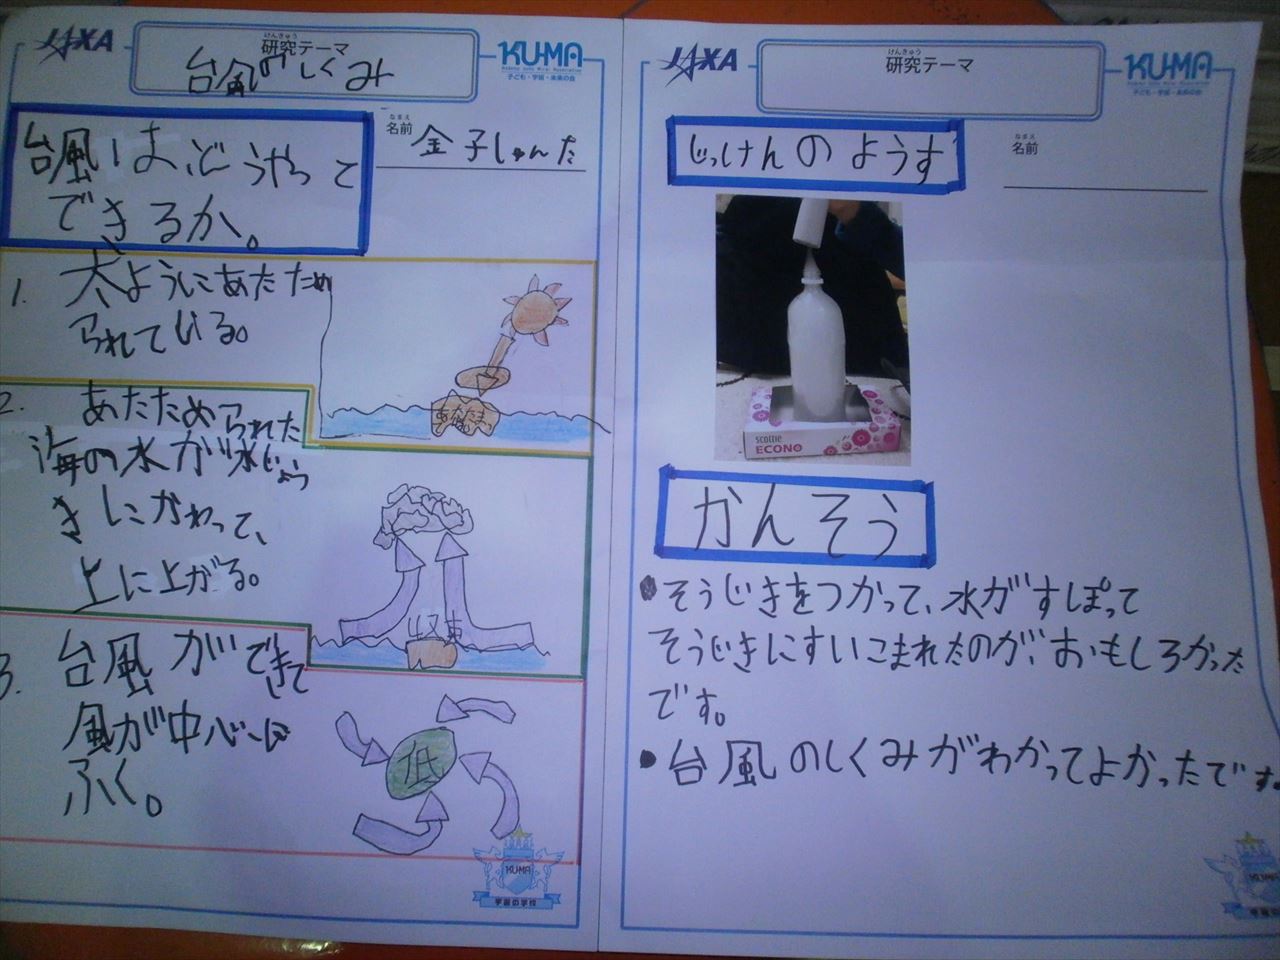 JAXA
けんきゅう
研究テーマ
台風のしくみ
KUMA
子ども・宇宙・未来の会
台風は、どうやって
できるか。
なまえ
名前
金子しゅんた
1. 太ようにあたため
られている。
2. あたためられた
海の水が水じょう
きにかわって、
上に上がる。
3. 台風ができて
風が中心に
ふく。
低
KUMA
宇宙の学校
JAXA
けんきゅう
研究テーマ
KUMA
子ども・宇宙・未来の会
なまえ
名前
じっけんのようす
scottie
ECONO
かんそう
●そうじきをつかって、水がすぽって
そうじきにすいこまれたのが、おもしろかった
です。
●台風のしくみがわかってよかったです。
KUMA